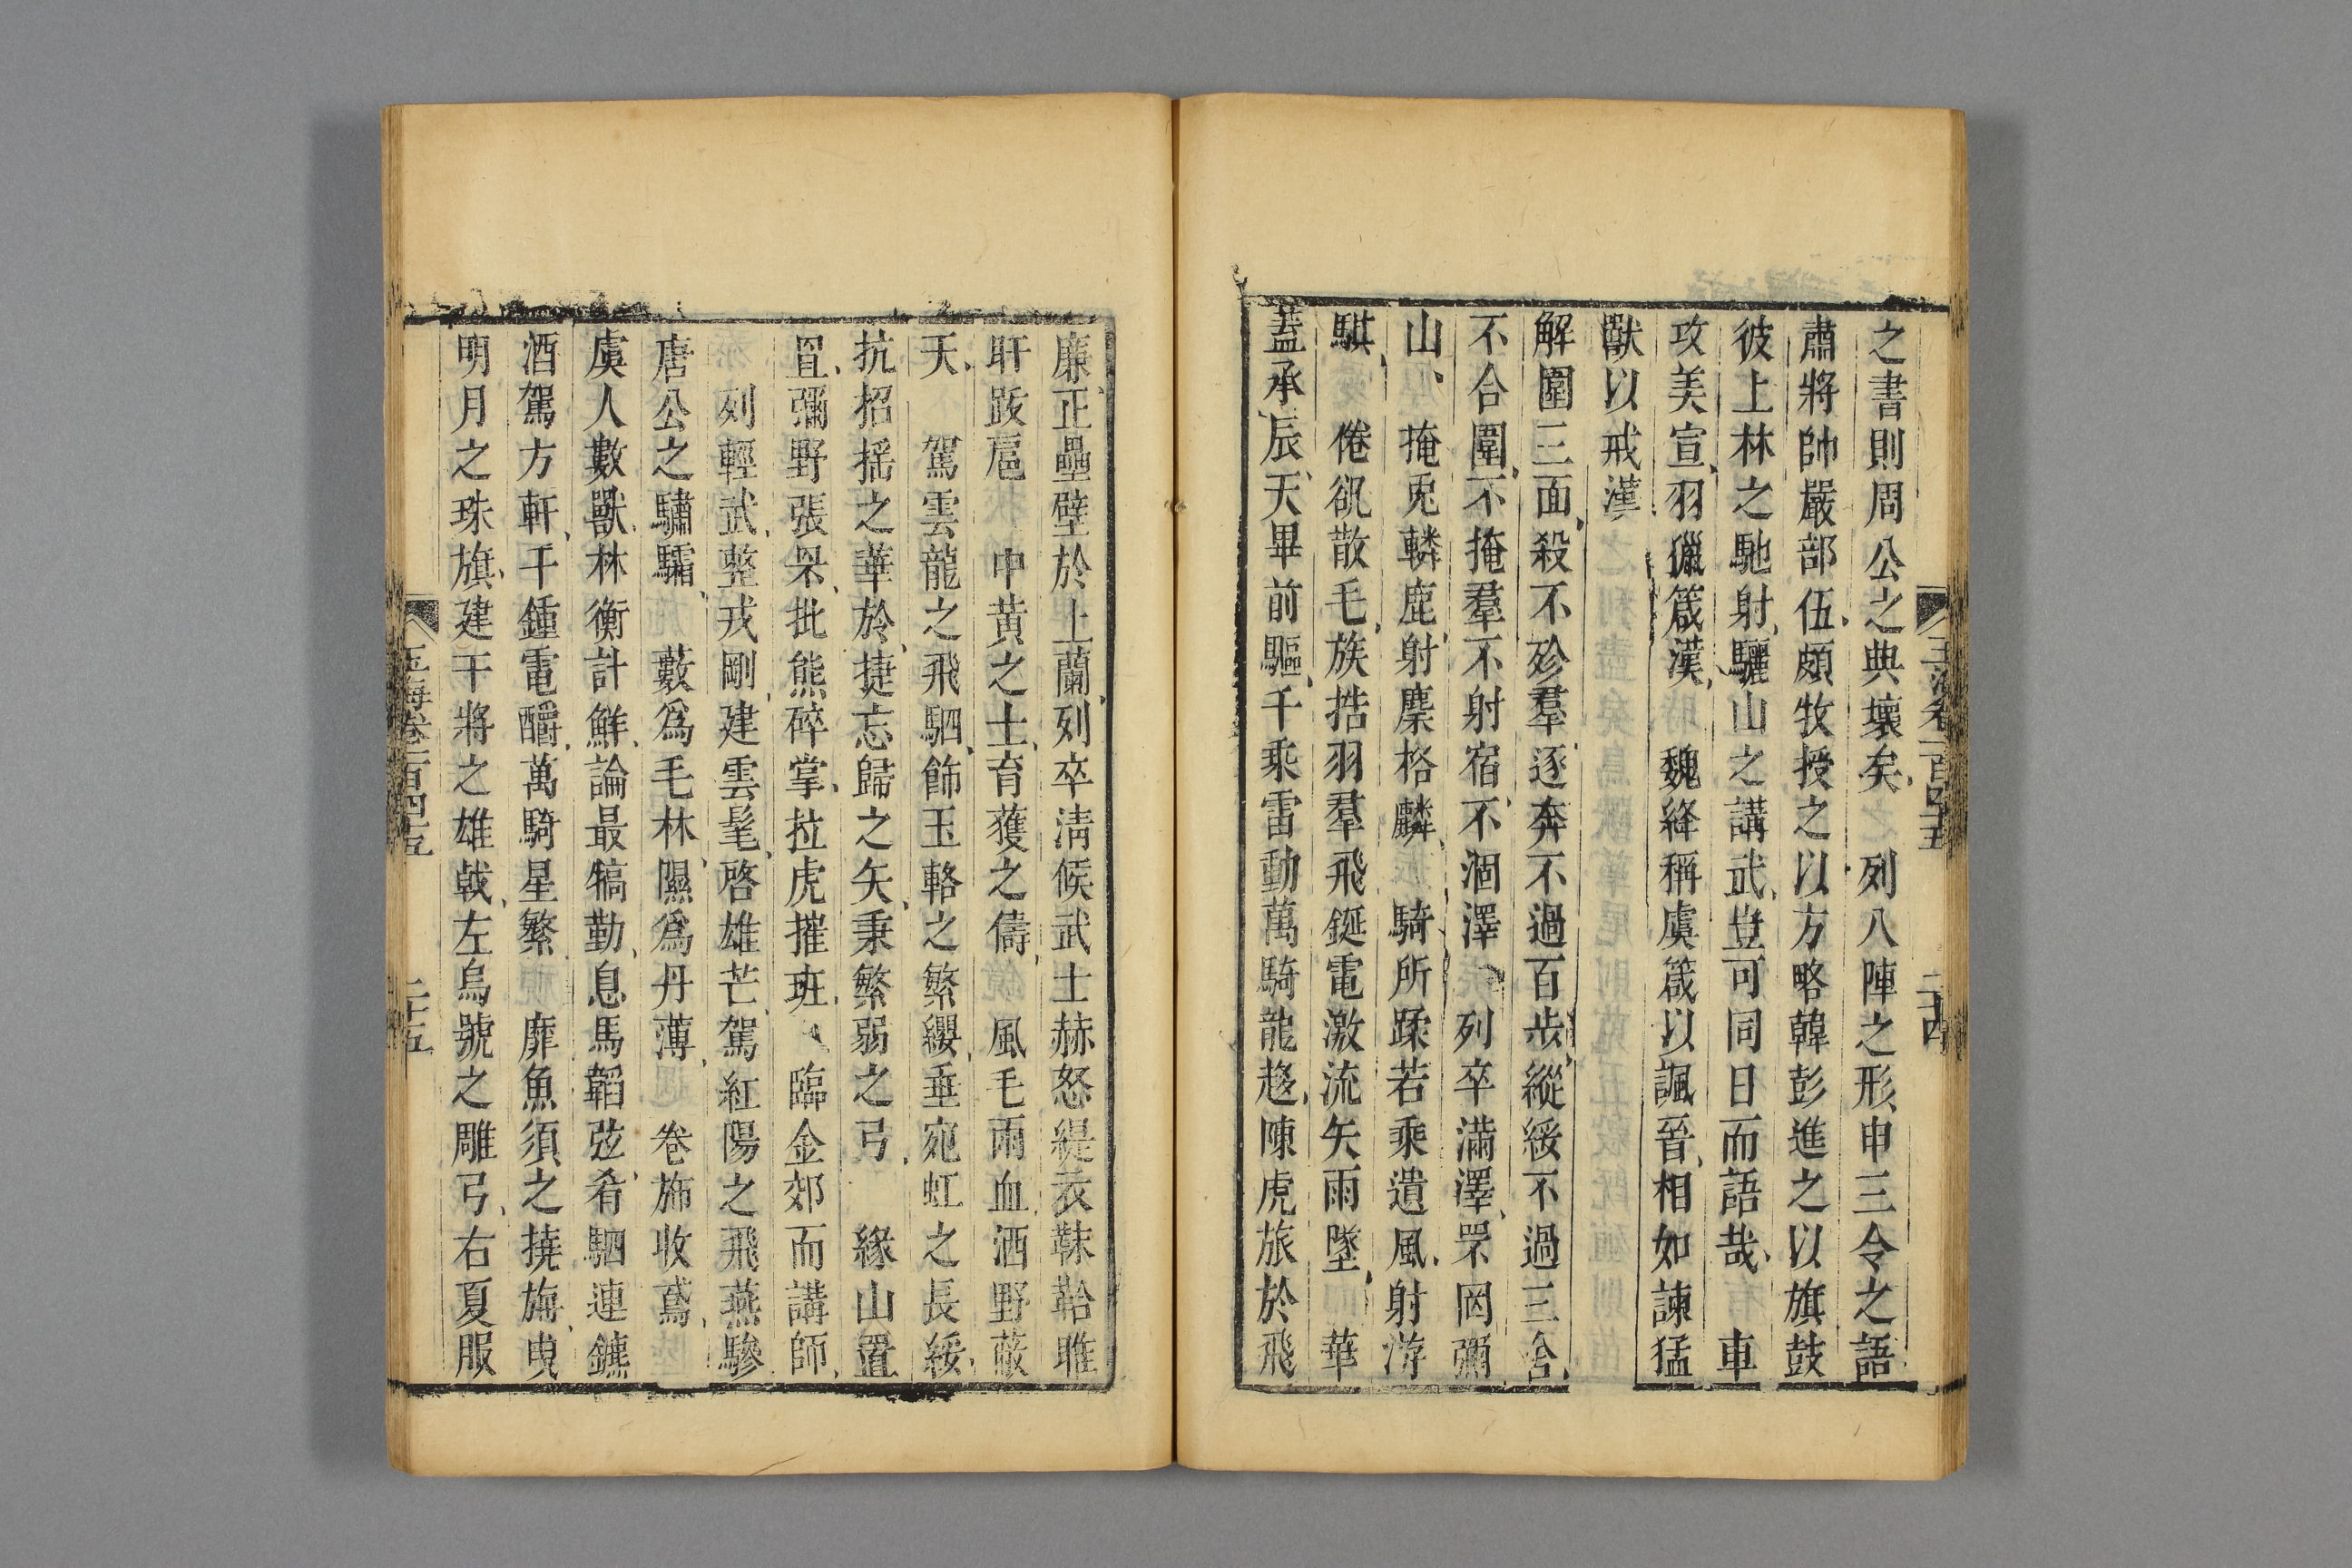 之書則周公之典壞矣　列八陣之形申三令之語
肅將帥嚴部伍頗牧授之以方略韓彭進之以旗鼓
彼上林之馳射驪山之講武豈可同日而語哉　車
攻美宣羽獵箴漢　魏絳稱虞箴以諷晉相如諫猛
獸以戒漢
解圍三面殺不殄羣逐奔不過百步縱綏不過三舍
不合圍不掩羣不射宿不涸澤　列卒滿澤罘罔彌
山　掩兎轔鹿射麋格麟　騎所蹂若乘遺風射游
騏　倦㕁散毛族捁羽羣飛鋋電激流矢雨墜　華
蓋承辰天畢前驅千乘雷動萬騎龍趍陳虎旅於飛
玉海卷一百四十五　二十四
廉正壘壁於上蘭列卒清候武士赫怒緹衣韎韐睢
盱跋扈　中黄之士育獲之儔　風毛雨血洒野蔽
天　駕雲龍之飛駟飾玉輅之繁纓垂宛虹之長綏
抗招揺之華於捷忘歸之矢秉繁弱之弓　緣山置
罝彌野張罘批熊碎掌拉虎摧班　臨金郊而講師
列輕武整戎剛建雲髦啓雄芒駕紅陽之飛燕驂
唐公之驌驦　藪爲毛林隰爲丹薄　卷斾收鳶
虞人數獸林衡計鮮論最犒勤息馬韜弦肴駟連鑣
酒駕方軒千鍾電釂萬騎星繁　靡魚須之撓旃曳
明月之珠旗建干將之雄戟左烏號之雕弓右夏服
玉海卷一百四十五　二十五